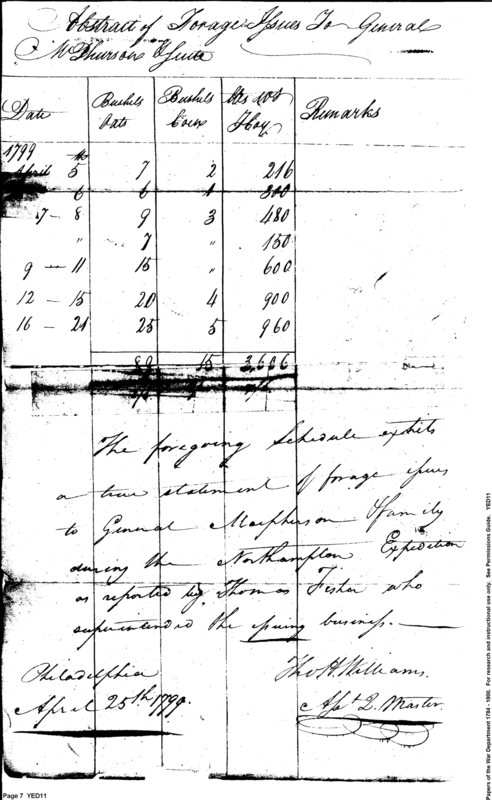 Abstract of Forage Issues To General
McPhersons & Suite
Date Bushels Oats Bushels Corn lbs wt Hay Remarks
1799
April 5 7 2 216
6 6 1 300
7 - 8 9 3 480
" 7 " 150
9 - 11 15 " 600
12 - 15 20 4 900
16 - 21 25 5 960
89 15 3,606
The foregoing Schedule exhibits
a true statement of forage issues
to General Macpherson & family
during the Northampton Expedition
as reported by Thomas Fisher who
superintended the issuing business.
Philadelphia Tho H. Williams.
April 25th 1799. Asst Q. Master
Page 7 YED11
Papers of the War Department 1784 - 1800. For research and instructional use only. See Permissions Guide. YED11